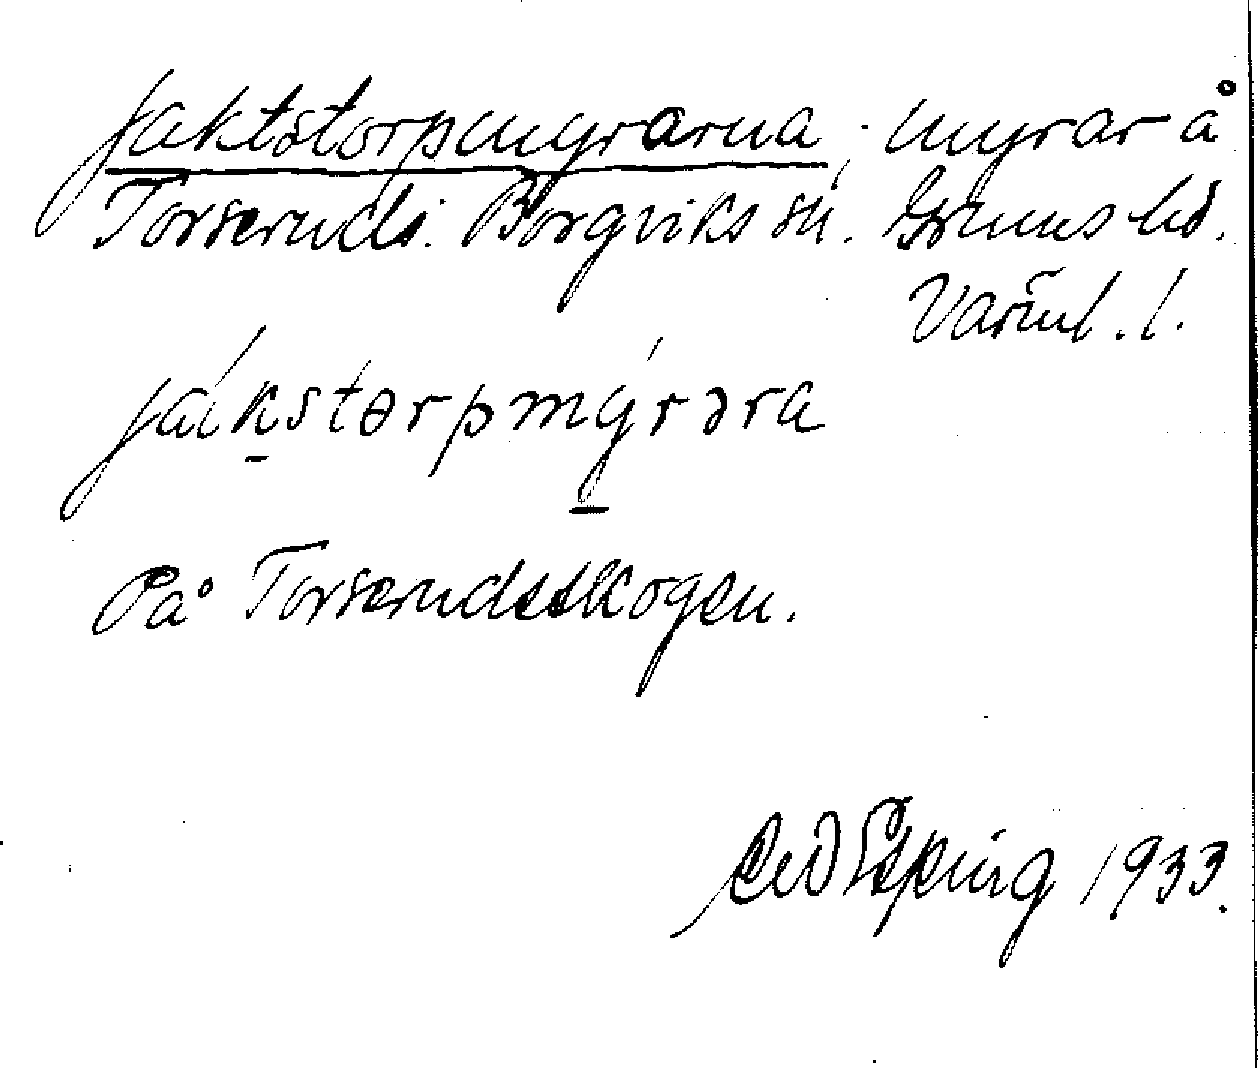 Jaktstorpmyrarna, myrar å
Torserud i Borgviks sn. Grums hd.
Värml. l.
jákstɵrpmýrəra
På Torserudsskogen.
Espring 1933.